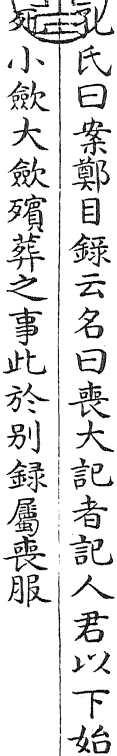 孔氏曰案鄭目録云名曰喪大記者記人君以下始
死小歛大歛殯葬之事此於别録屬喪服